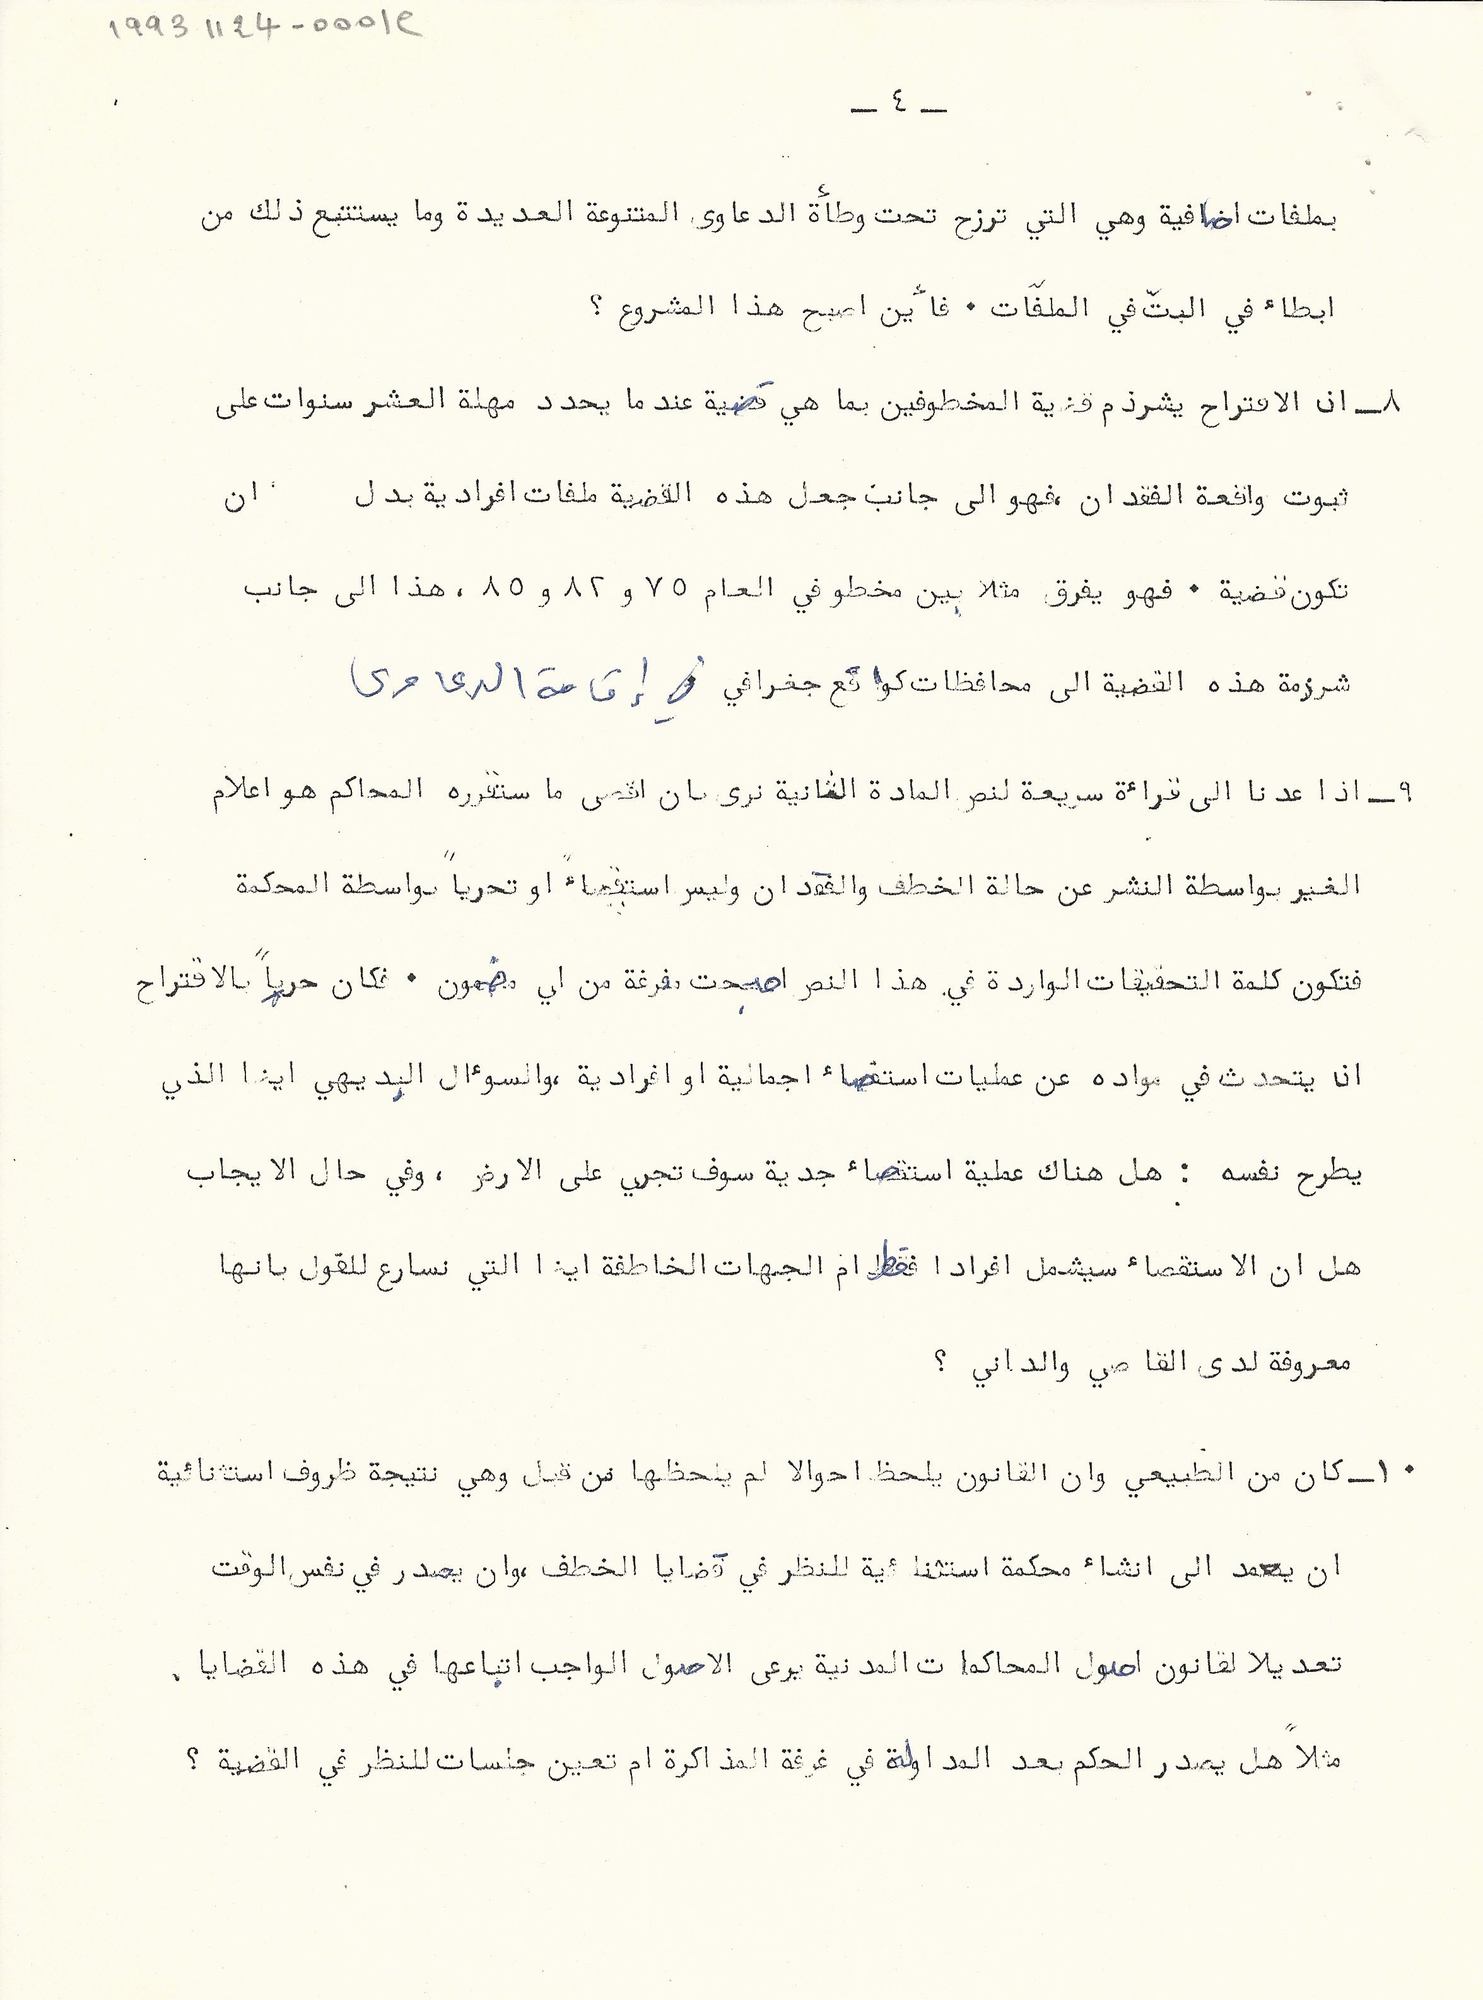 19931124-0001e
ـ ٤ ـ
بملفات اضافية وهي التي ترزح تحت وطأة الدعاوى المتنوعة العديدة وما يستتبع ذلك من
ابطاء في البتّ في الملفّات ٠ فأين اصبح هذا المشروع ؟
٨ـ ان الاقتراح يشرذم قضية المخطوفين بما هي قضية عندما يحدد مهلة العشر سنوات على
ثبوت واقعة الفقدان ،فهو الى جانب جعل هذه القضية ملفات افرادية بدل ان
تكون قضية ٠ فهو يفرق مثلا بين مخطوفي العام ٧٥ و ٨٢ و ٨٥ ، هذا الى جانب
شرزمة هذه القضية الى محافظات كواقع جغرافي في إقامة الدعاوى
٩ـ اذا عدنا الى قراءة سريعة لنص المادة الثانية نرى بان اقصى ما ستقرره المحاكم هو اعلام
الغير بواسطة النشر عن حالة الخطف والفقدان وليس استقصاءً او تحرياً بواسطة المحكمة
فتكون كلمة التحقيقات الواردة في هذا النص اصبحت مفرغة من اي مضمون ٠ فكان حرياً بالاقتراح
ان يتحدث في مواده عن عمليات استقصاء اجمالية او افرادية ،والسوءال البديهي ايضا الذي
يطرح نفسه : هل هناك عملية استقصاء جدية سوف تجري على الارض ، وفي حال الايجاب
هل ان الاستقصاء سيشمل افرادا فقط ام الجهات الخاطفة ايضا التي نسارع للقول بانها
معروفة لدى القاصي والداني ؟
١٠ـ كان من الطبيعي وان القانون يلحظ احوالا لم يلحظها من قبل وهي نتيجة ظروف استثنائية
ان يعمد الى انشاء محكمة استثنائية للنظر في قضايا الخطف ،وان يصدر في نفس الوقت
تعديلا لقانون اصول المحاكمات المدنية يرعى الاصول الواجب اتباعها في هذه القضايا .
مثلاً هل يصدر الحكم بعد المداولة في غرفة المذاكرة ام تعين جلسات للنظر في القضية ؟